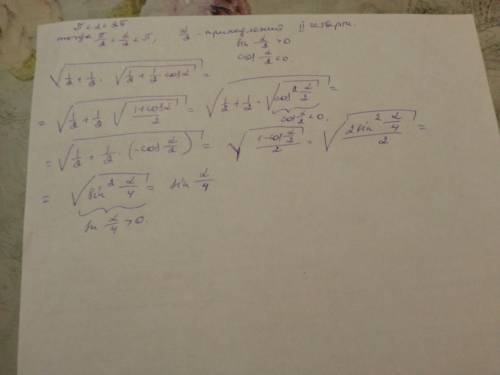 π < α < 2π
тогда π/2 < α/2 < π, α/2 - принадлежит II четверти.
sin α/2 > 0
cos α/2 < 0
√(1/2 + 1/2 · √(1/2 + 1/2 cosα)) =
= √(1/2 + 1/2 √((1+cosα)/2)) = √(1/2 + 1/2 · √(cos² α/2)) =
cos α/2 < 0.
= √(1/2 + 1/2 · (-cos α/2)) = √((1-cos α/2)/2) = √((2sin² α/4)/2) =
= √(sin² α/4) = sin α/4
sin α/4 > 0.